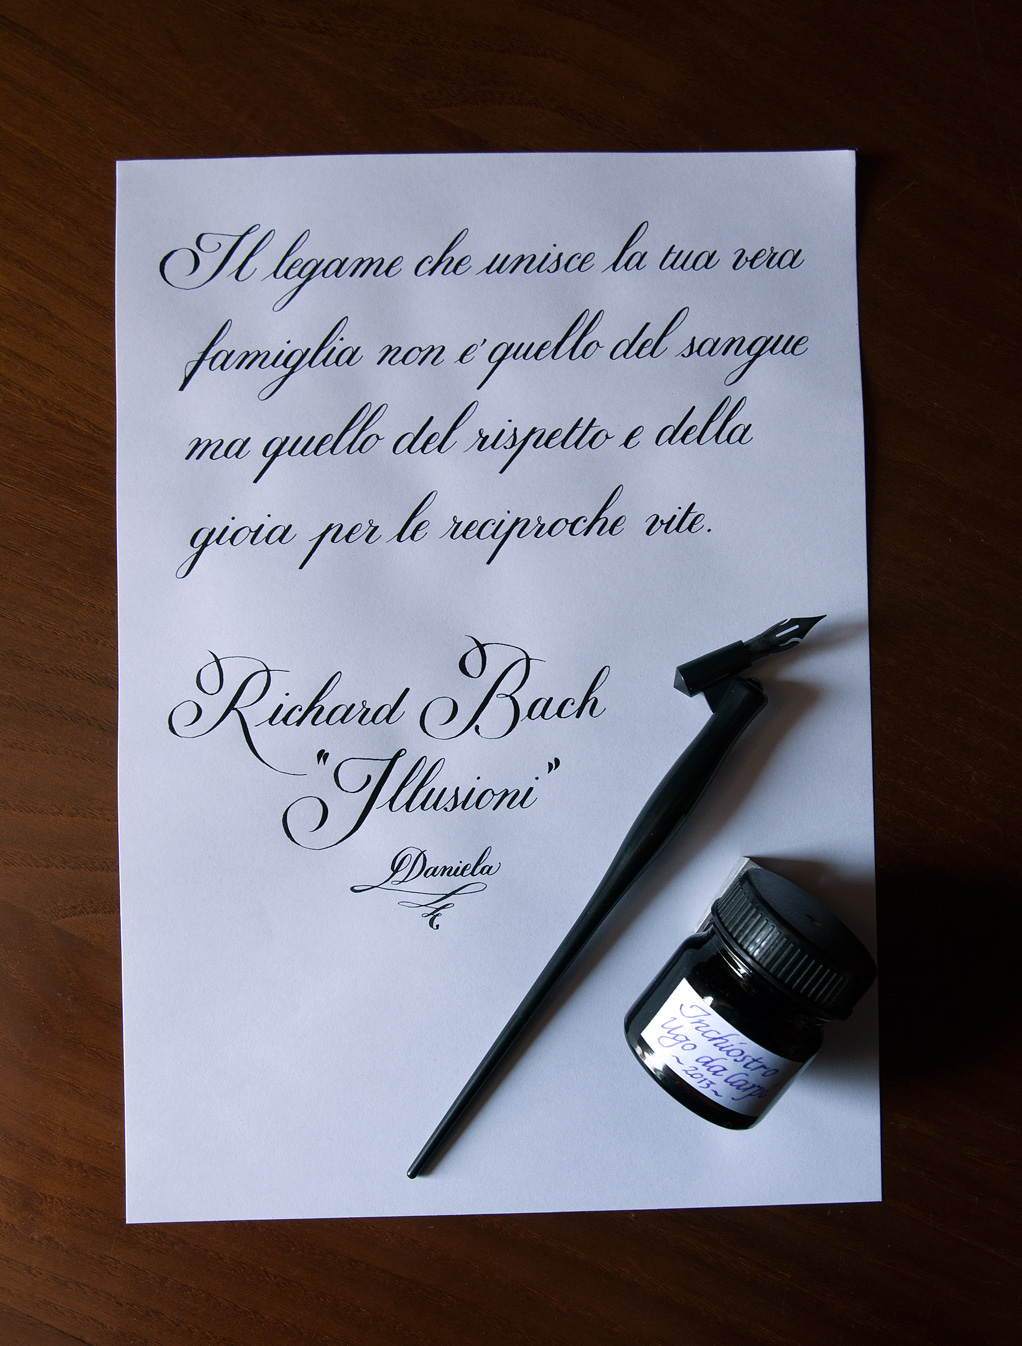 Il legame che unisce la tua vera
famiglia non e' quello del sangue
ma quello del rispetto e della
gioia per le reciproche vite.
Richard Bach
"Illusioni"
Daniela
Inchiostro
Ugo da Carpi
~ 2013 ~